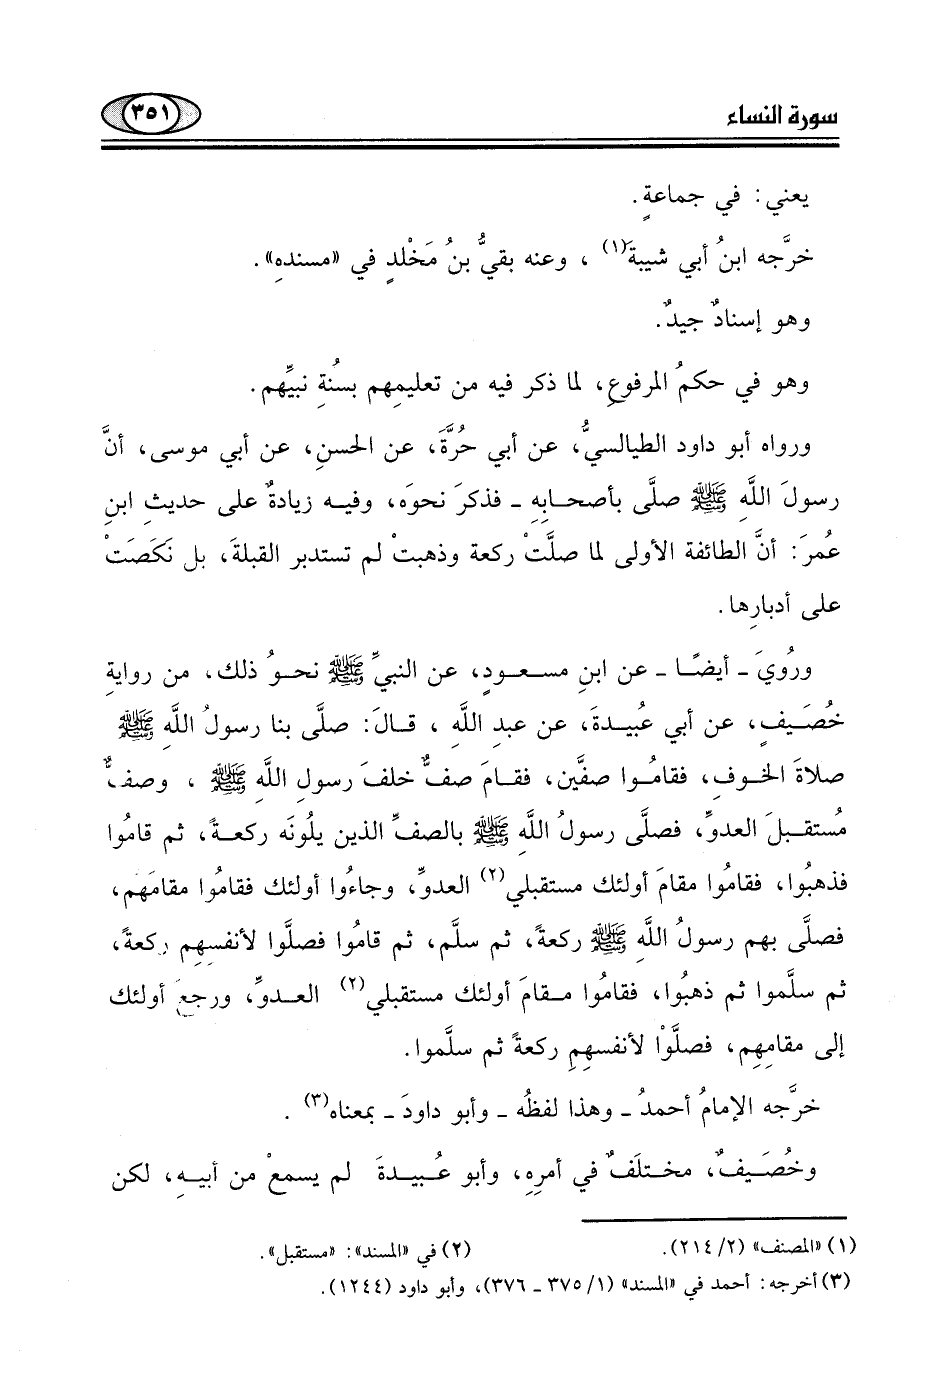 سورة النساء
٣٥١
يعني: في جماعةٍ.
خرَّجه ابنُ أبي شيبة(١) ، وعنه بقيُّ بنُ مَخْلدٍ في «مسندهِ».
وهو إسنادٌ جيدٌ.
وهو في حكمُ المرفوعِ، لما ذكر فيه من تعليمِهم بسُنةِ نبيِّهم.
ورواه أبو داود الطيالسيُّ، عن أبي حُرَّةَ، عن الحسنِ، عن أبي موسى، أنَّ
رسولَ اللَّهِ ﷺ صلَّى بأصحابِهِ ـ فذكرَ نحوَه، وفيه زيادةٌ على حديثِ ابنِ
عُمرَ: أنَّ الطائفة الأولى لما صلَّتْ ركعة وذهبتْ لم تستدبر القبلةَ، بل نَكَصَتْ
على أدبارِها.
ورُويَ ـ أيضًا ـ عن ابنِ مسعودٍ، عن النبيِّ ﷺ نحوُ ذلك، من روايةِ
خُصَيفٍ، عن أبي عُبيدةَ، عن عبدِ اللَّهِ ، قالَ: صلَّى بنا رسولُ اللَّهِ ﷺ
صلاةَ الخوفِ، فقامُوا صفَّين، فقامَ صفٌّ خلفَ رسولِ اللَّهِ ﷺ ، وصفٌّ
مُستقبلَ العدوِّ، فصلَّى رسولُ اللَّهِ ﷺ بالصفِّ الذين يلُونَه ركعةً، ثم قامُوا
فذهبُوا، فقامُوا مقامَ أولئك مستقبلي(٢) العدوِّ، وجاءُوا أولئك فقامُوا مقامَهم،
فصلَّى بهم رسولُ اللَّهِ ﷺ ركعةً، ثم سلَّم، ثم قامُوا فصلَّوا لأنفسِهِم ركعةً،
ثم سلَّموا ثم ذهبُوا، فقامُوا مقامَ أولئك مستقبلي(٢) العدوِّ، ورجعَ أولئك
إلى مقامِهِم، فصلَّوْا لأنفسِهِمِ ركعةً ثم سلَّموا.
خرَّجه الإمامُ أحمدُ ـ وهذا لفظُه ـ وأبو داودَ ـ بمعناه(٣) .
وخُصَيفٌ، مختلَفٌ في أمرِهِ، وأبو عُبيدةَ لم يسمعْ من أبيهِ، لكن
(١) «المصنف» (٢/ ٢١٤).
(٢) في «المسند»: «مستقبل».
(٣) أخرجه: أحمد في «المسند» (١/ ٣٧٥ ـ ٣٧٦)، وأبو داود (١٢٤٤).